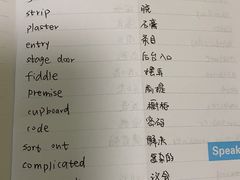 strip 脱
plaster 石膏
entry 条目
stage door 后台入口
fiddle
premise 前提
cupboard 橱柜
code 密码
sort out 解决
complicated 复杂的
Speak